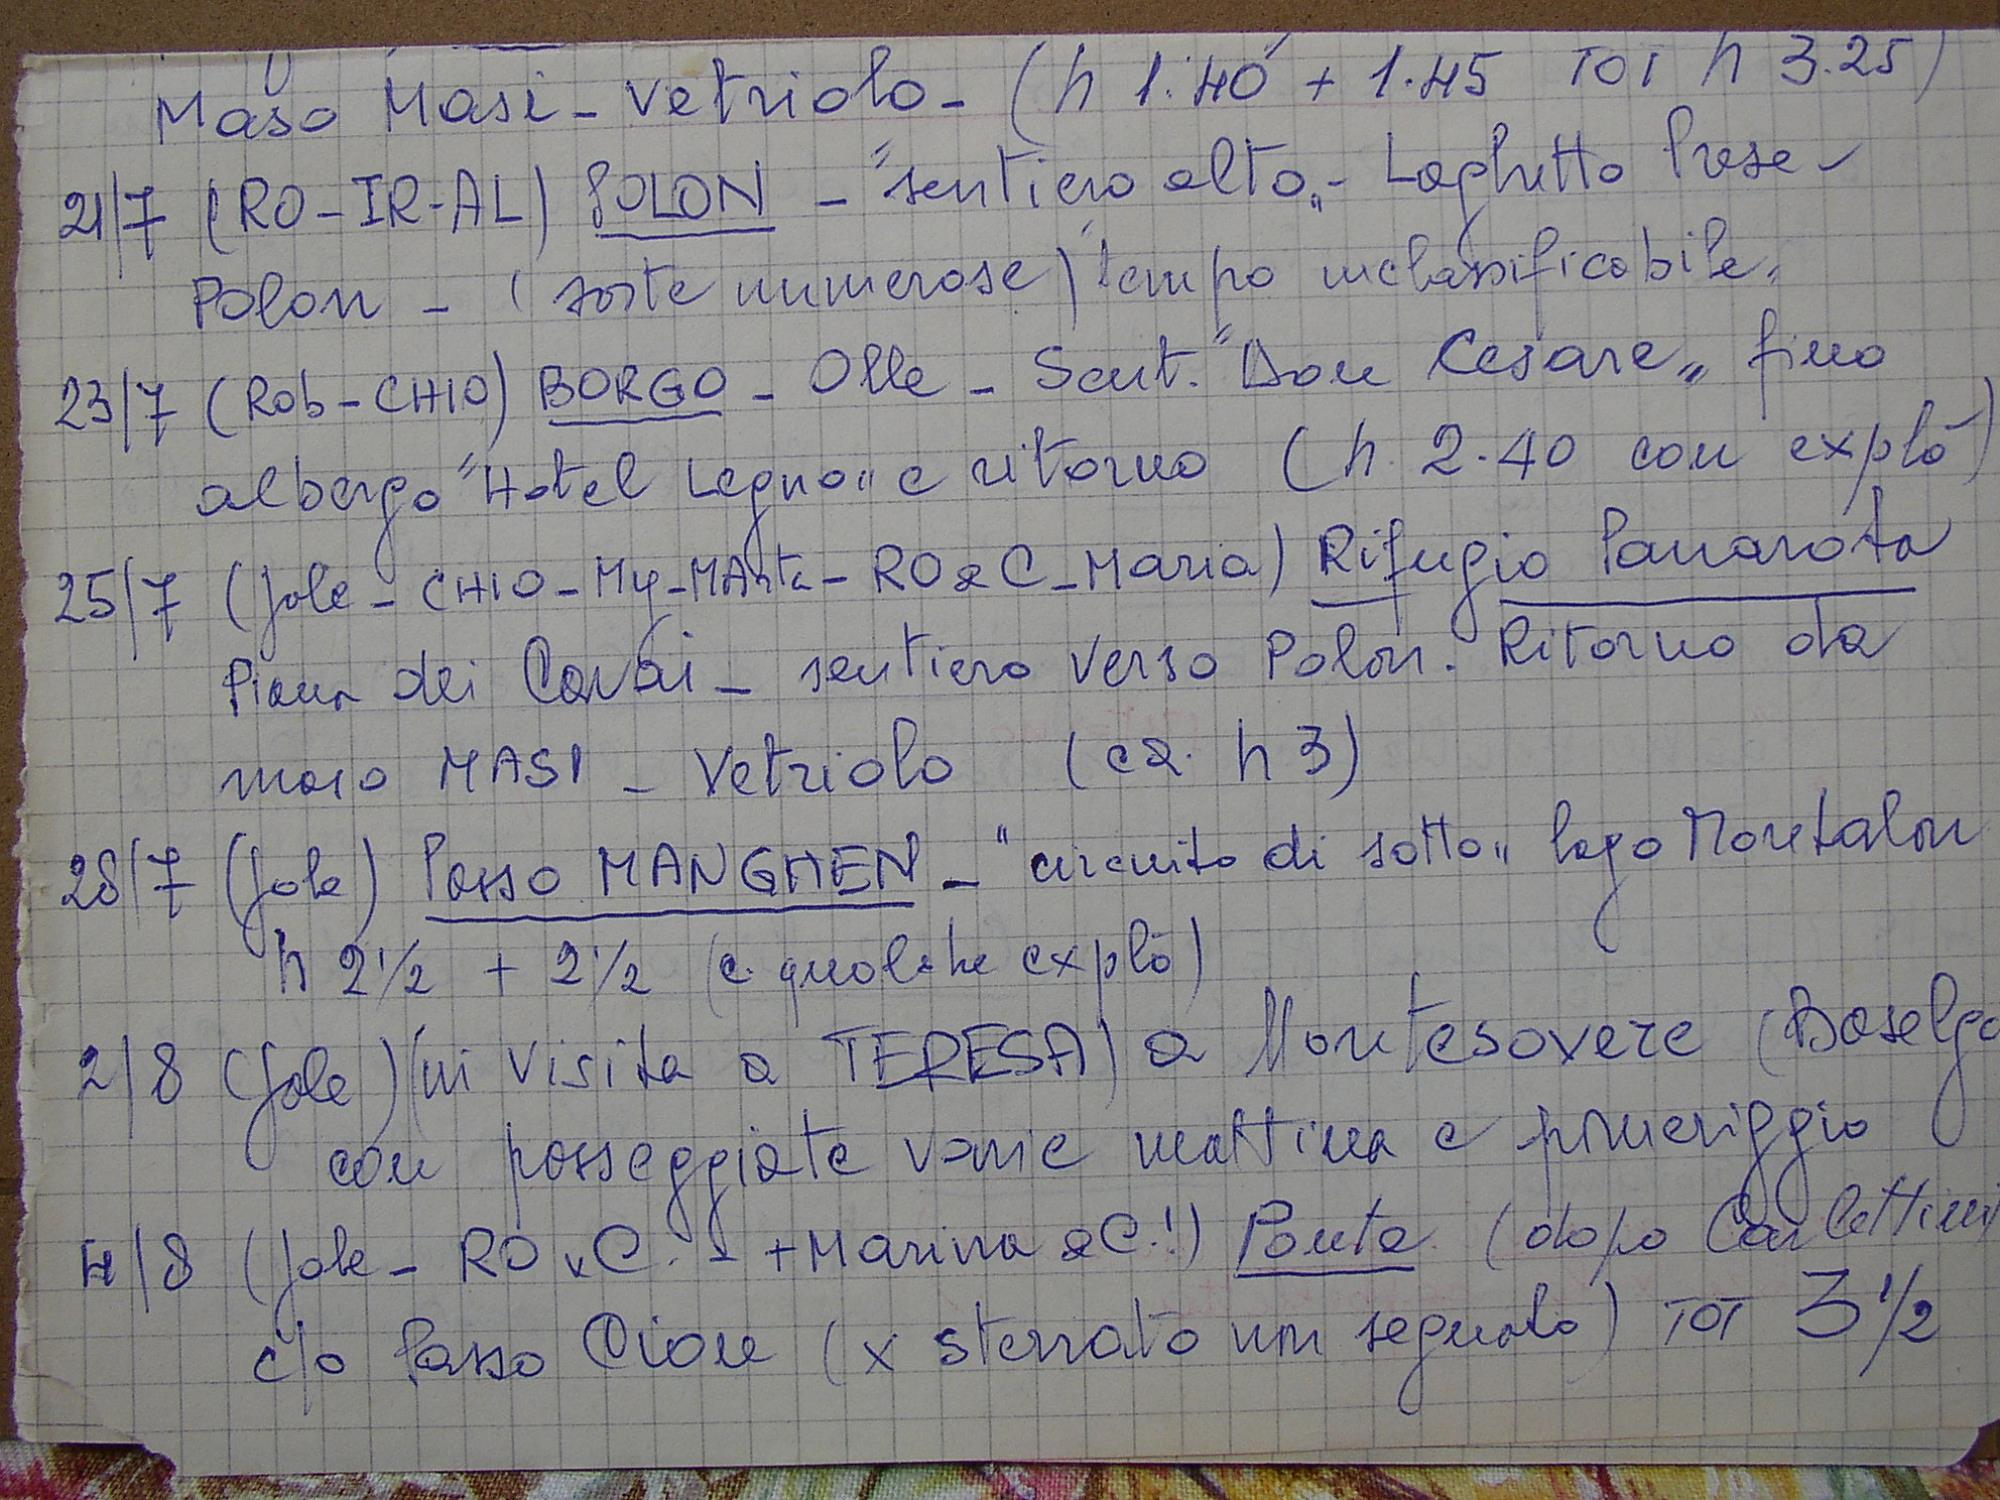 Maso Masi - Vetriolo - (h 1.40 + 1.45 TOT h 3.25)
21/7 (RO-IR-AL) POLON - "sentiero alto" - Laghetto Prese -
Polon - (soste numerose) tempo inclassificabile.
23/7 (Rob-CHIO) BORGO - Olle - Sent. "Don Cesare" fino
albergo "Hotel Legno" e ritorno (h. 2.40 con explò)
25/7 (Jole - CHIO - My - MArta - RO e C - Maria) Rifugio Panarotta
Piana dei Cavai - sentiero verso Polon. Ritorno da
maso MASI - Vetriolo (ca. h 3)
28/7 (Jole) Passo MANGHEN - "circuito di sotto" lago Montalon
h 2 1/2 + 2 1/2 (e qualche explò)
2/8 (Jole) (in visita a TERESA) a Montesovere (Baselga
con passeggiate varie mattina e pomeriggio
4/8 (Jole - RO x C. - + Marina e C.!) (dopo
c/o Passo (x sterrato un segnalo) TOT 3 1/2